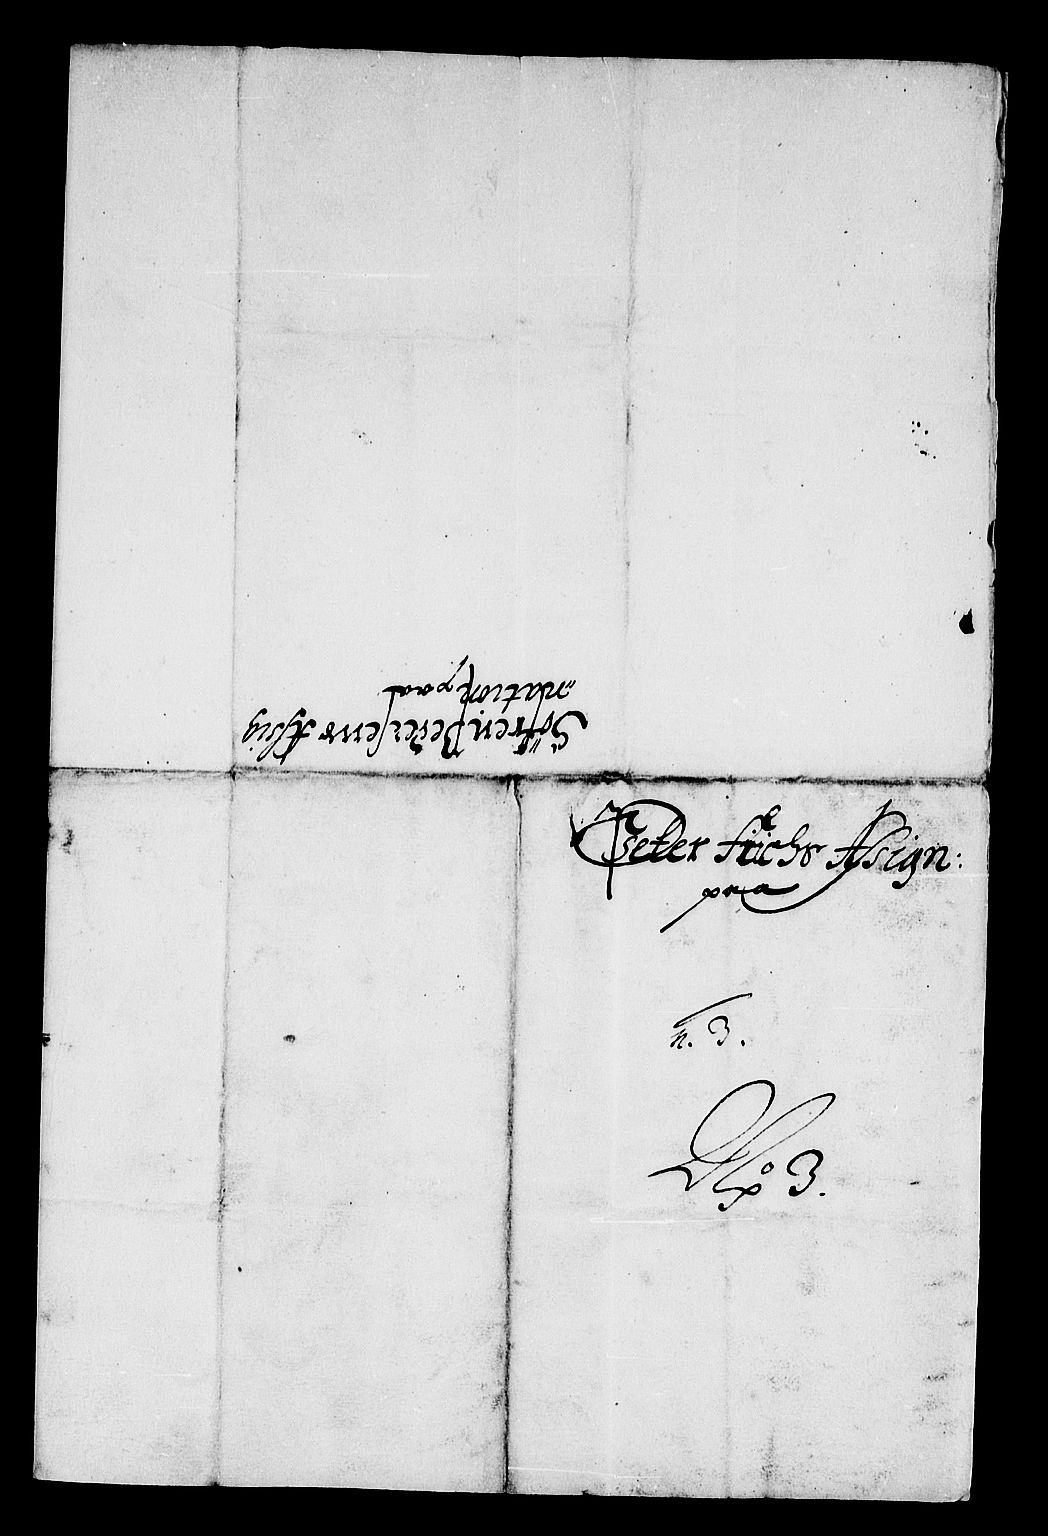 Söffren Pedersens Assig
"nation paa
Peter Fuchs Assign:
paa
n. 3.
No 3.